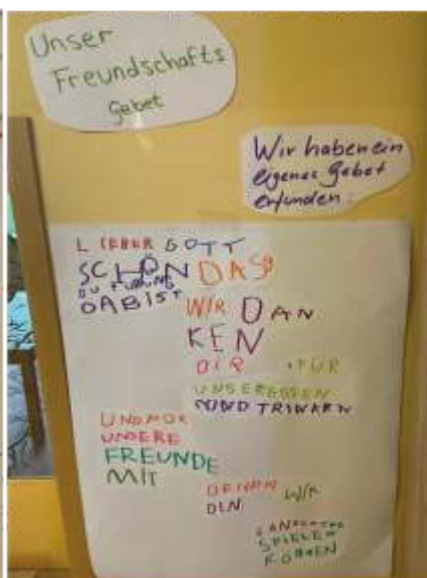 Unser
Freundschafts
Gebet
Wir haben ein
eigenes Gebet
erfunden:
LIEBER GOTT
SCHÖN DASS
DU FÜR UNS
DA BIST
WIR DAN
KEN
DIR FÜR
UNSER ESSEN
UND TRINKEN
UND FÜR
UNSERE
FREUNDE
MIT
DENEN WIR
DEN
SPIELEN
KÖNNEN